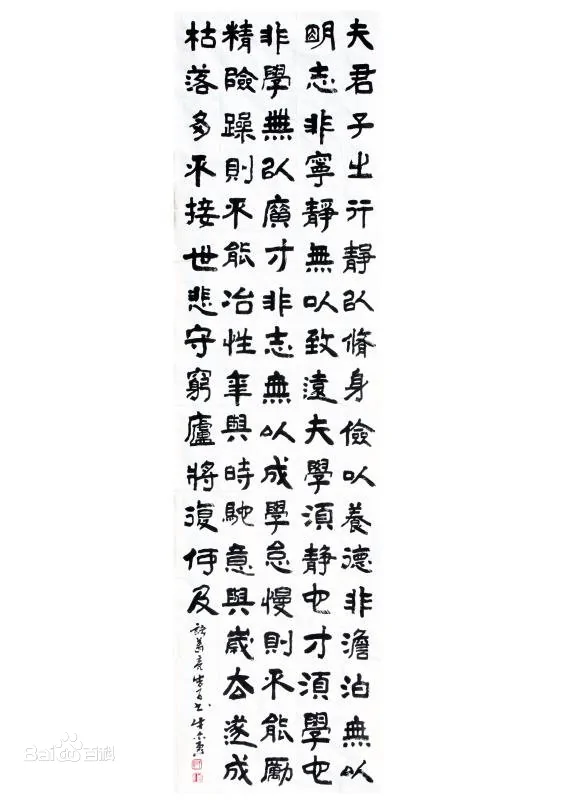 夫君子之行靜以脩身儉以養德非澹泊無以
明志非寧靜無以致遠夫學須靜也才須學也
非學無以廣才非志無以成學怠慢則不能勵
精險躁則不能冶性年與時馳意與歲去遂成
枯落多不接世悲守窮廬將復何及
諸葛亮
Baidu百科